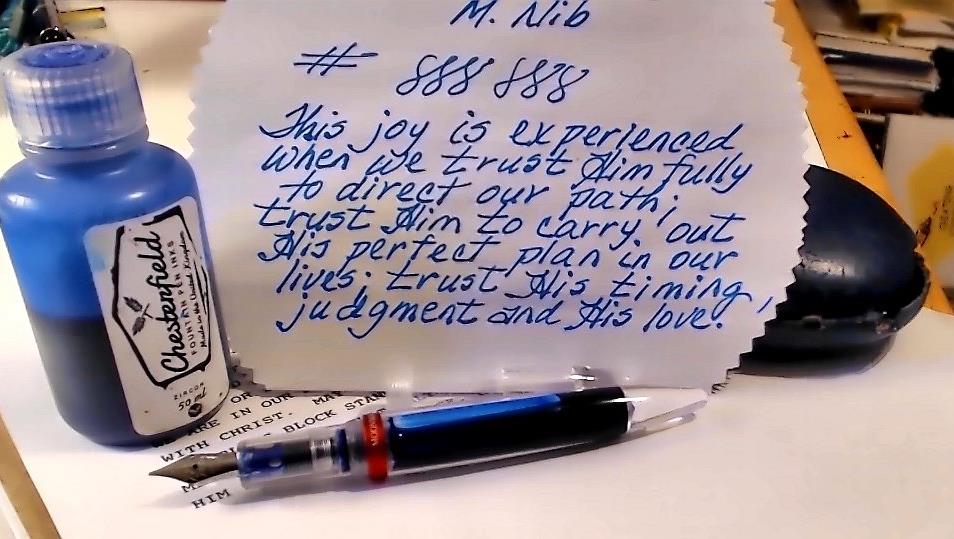 M. Nib
# 888 888
This joy is experienced
when we trust Him fully
to direct our path;
trust Him to carry out
His perfect plan in our
lives; trust His timing,
judgment and His love.
Chesterfield
FOUNTAIN PEN INKS
Made in the United Kingdom
ZIRCON
50 ml
OR
ARE IN OUR MAY
WITH CHRIST.
BLOCK STAN
HIM